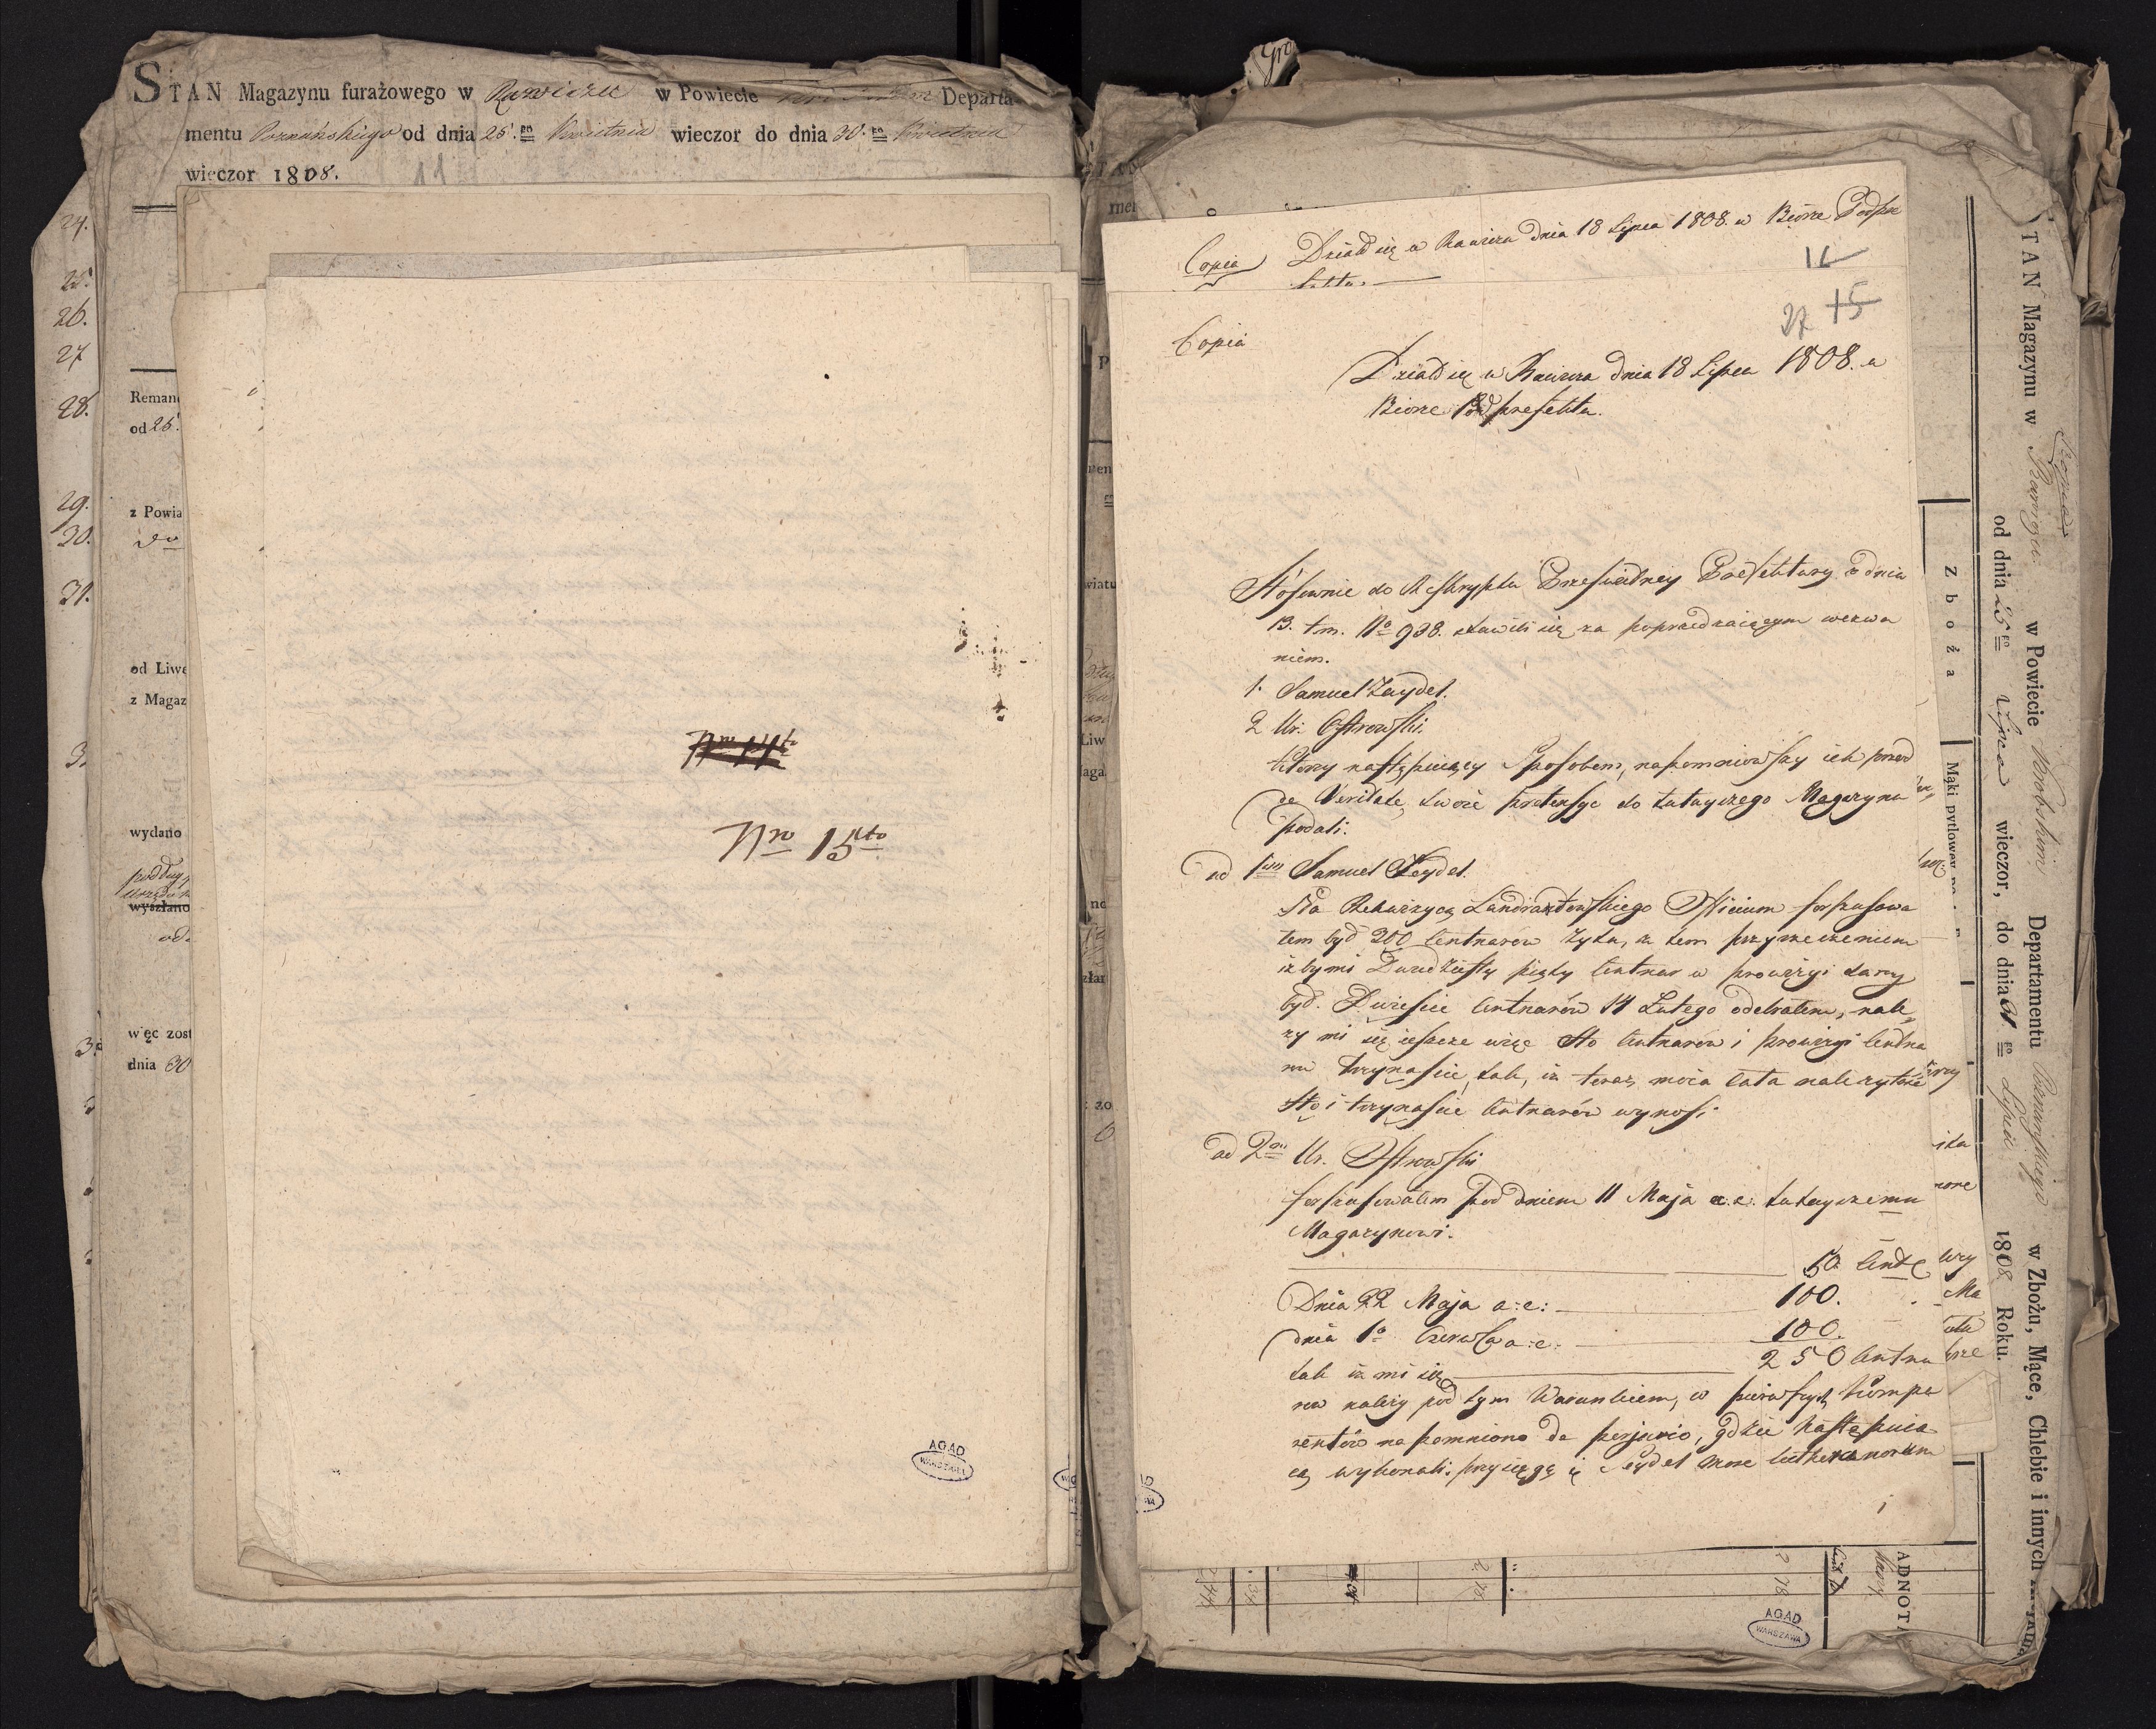 STAN Magazynu furażowego w Rawiczu w Powiecie Departa-
mentu Poznańskiego od dnia 25. go Kwietnia wieczor do dnia 30. go Kwietnia
wieczor 1808.
11
24.
25.
26.
27
28.
29.
30.
31.
Reman
od 25.
z Powia
do
od Liwe
z Magaz
wydano
wyszłano
więc zost
dnia 30
Nro 14to
Nro 15to
AGAD
WARSZAWA
Copia Działo się w Rawiczu dnia 18 Lipca 1808. w Biórze Podpre
fekta.
Copia
27 15
Działo się w Rawiczu dnia 18 Lipca 1808. w
Biorze Podprefekta.
Stósownie do Reskryptu Prześwietney Prefektury z dnia
13. t.m. No 938. stawili się za poprzedzaiącym wezwa
niem.
1. Samuel Zeydel.
2 Ur. Ostrowski.
którzy następuiący Sposobem, napomniowszy ich przod
de Veritate, swoie pretensye do tutayszego Magazynu
podali.
ad 1um Samuel Zeydel.
Na Rekwizycyą Landrattowskiego Officium forszusowa
łem był 200 Centnarow Żyta, za tem przyrzeczeniem
iżby mi Dwudziesty piąty Centnar w prowizyi dany
był. Dwieście Centnarów 14 Lutego odebrałem, nale
ży mi się ieszcze więc Sto Centnarow i prowizyi Centna
row trzynaście, tak, iż teraz moia cała należytość
Sto i trzynaście Centnarów wynosi
ad 2um Ur. Ostrowski
forszusowałem pod dniem 11 Maja a.c. tutayszemu
Magazynowi.
50. Cent
Dnia 22 Maja a:c: 100.
dnia 1o Czerwca a:c: 100.
tak iż mi się 250 Centna
row należy pod tym Warunkiem, w pierwszych kompa
rentów napomniono de perjurio, gdzie następuią
cą wykonali przysięgę i Zeydel more lutheranorum
i
STAN Magazynu w Rawiczu w Powiecie Krobskim Departamentu Poznańskiego w Zbożu, Mące, Chlebie i innych
od dnia 25 go Lipca wieczor, do dnia 31 go Lipca 1808 Roku.
Zboża
Mąki pytlowey
ADNOTA
AGAD
WARSZAWA